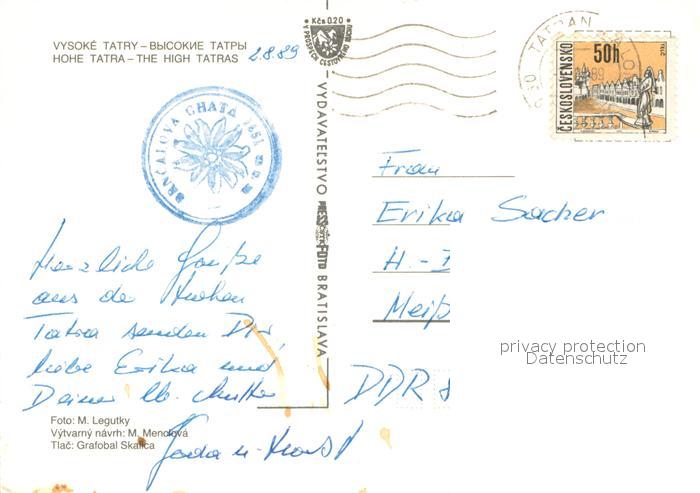 VYSOKÉ TATRY – ВЫСОКИЕ ТАТРЫ
HOHE TATRA – THE HIGH TATRAS
2.8.89
Kčs 0.20
V PROSPECH CESTOVNÉHO RUCHU
TATRAN
ČESKOSLOVENSKO
50h
CHATA
VYDAVATEĽSTVO
FOTO BRATISLAVA
Herzliche Grüße
aus der Hohen
Tatra senden Dir,
liebe Erika und
Deiner lb. Mutter
u. Horst
Frau
Erika Sacher
H.-
Meiß
DDR
privacy protection
Datenschutz
Foto: M. Legutky
Výtvarný návrh: M. Mencľová
Tlač: Grafobal Skalica